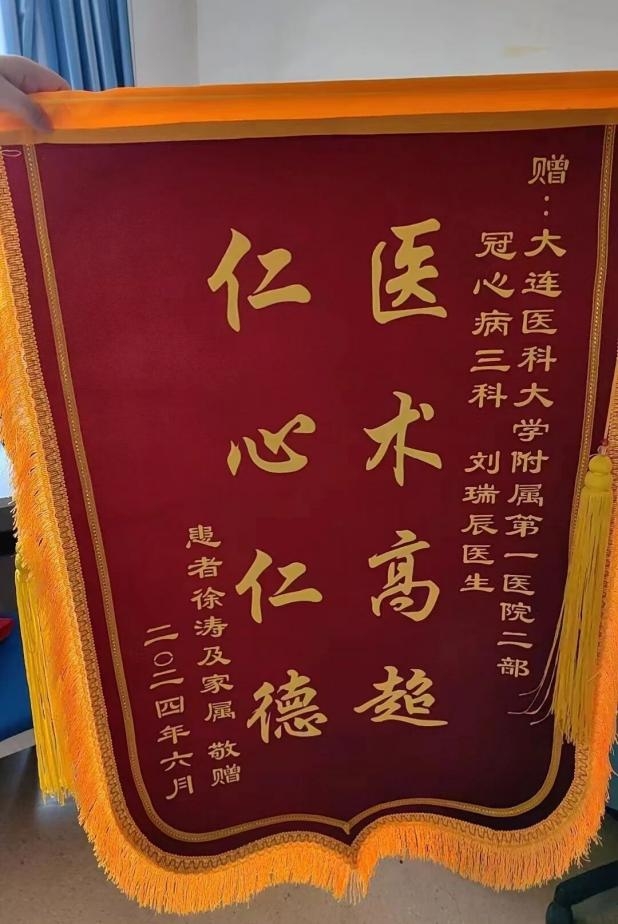 赠：大连医科大学附属第一医院二部
冠心病三科 刘瑞辰医生
医术高超
仁心仁德
患者徐涛及家属 敬赠
二〇二四年六月